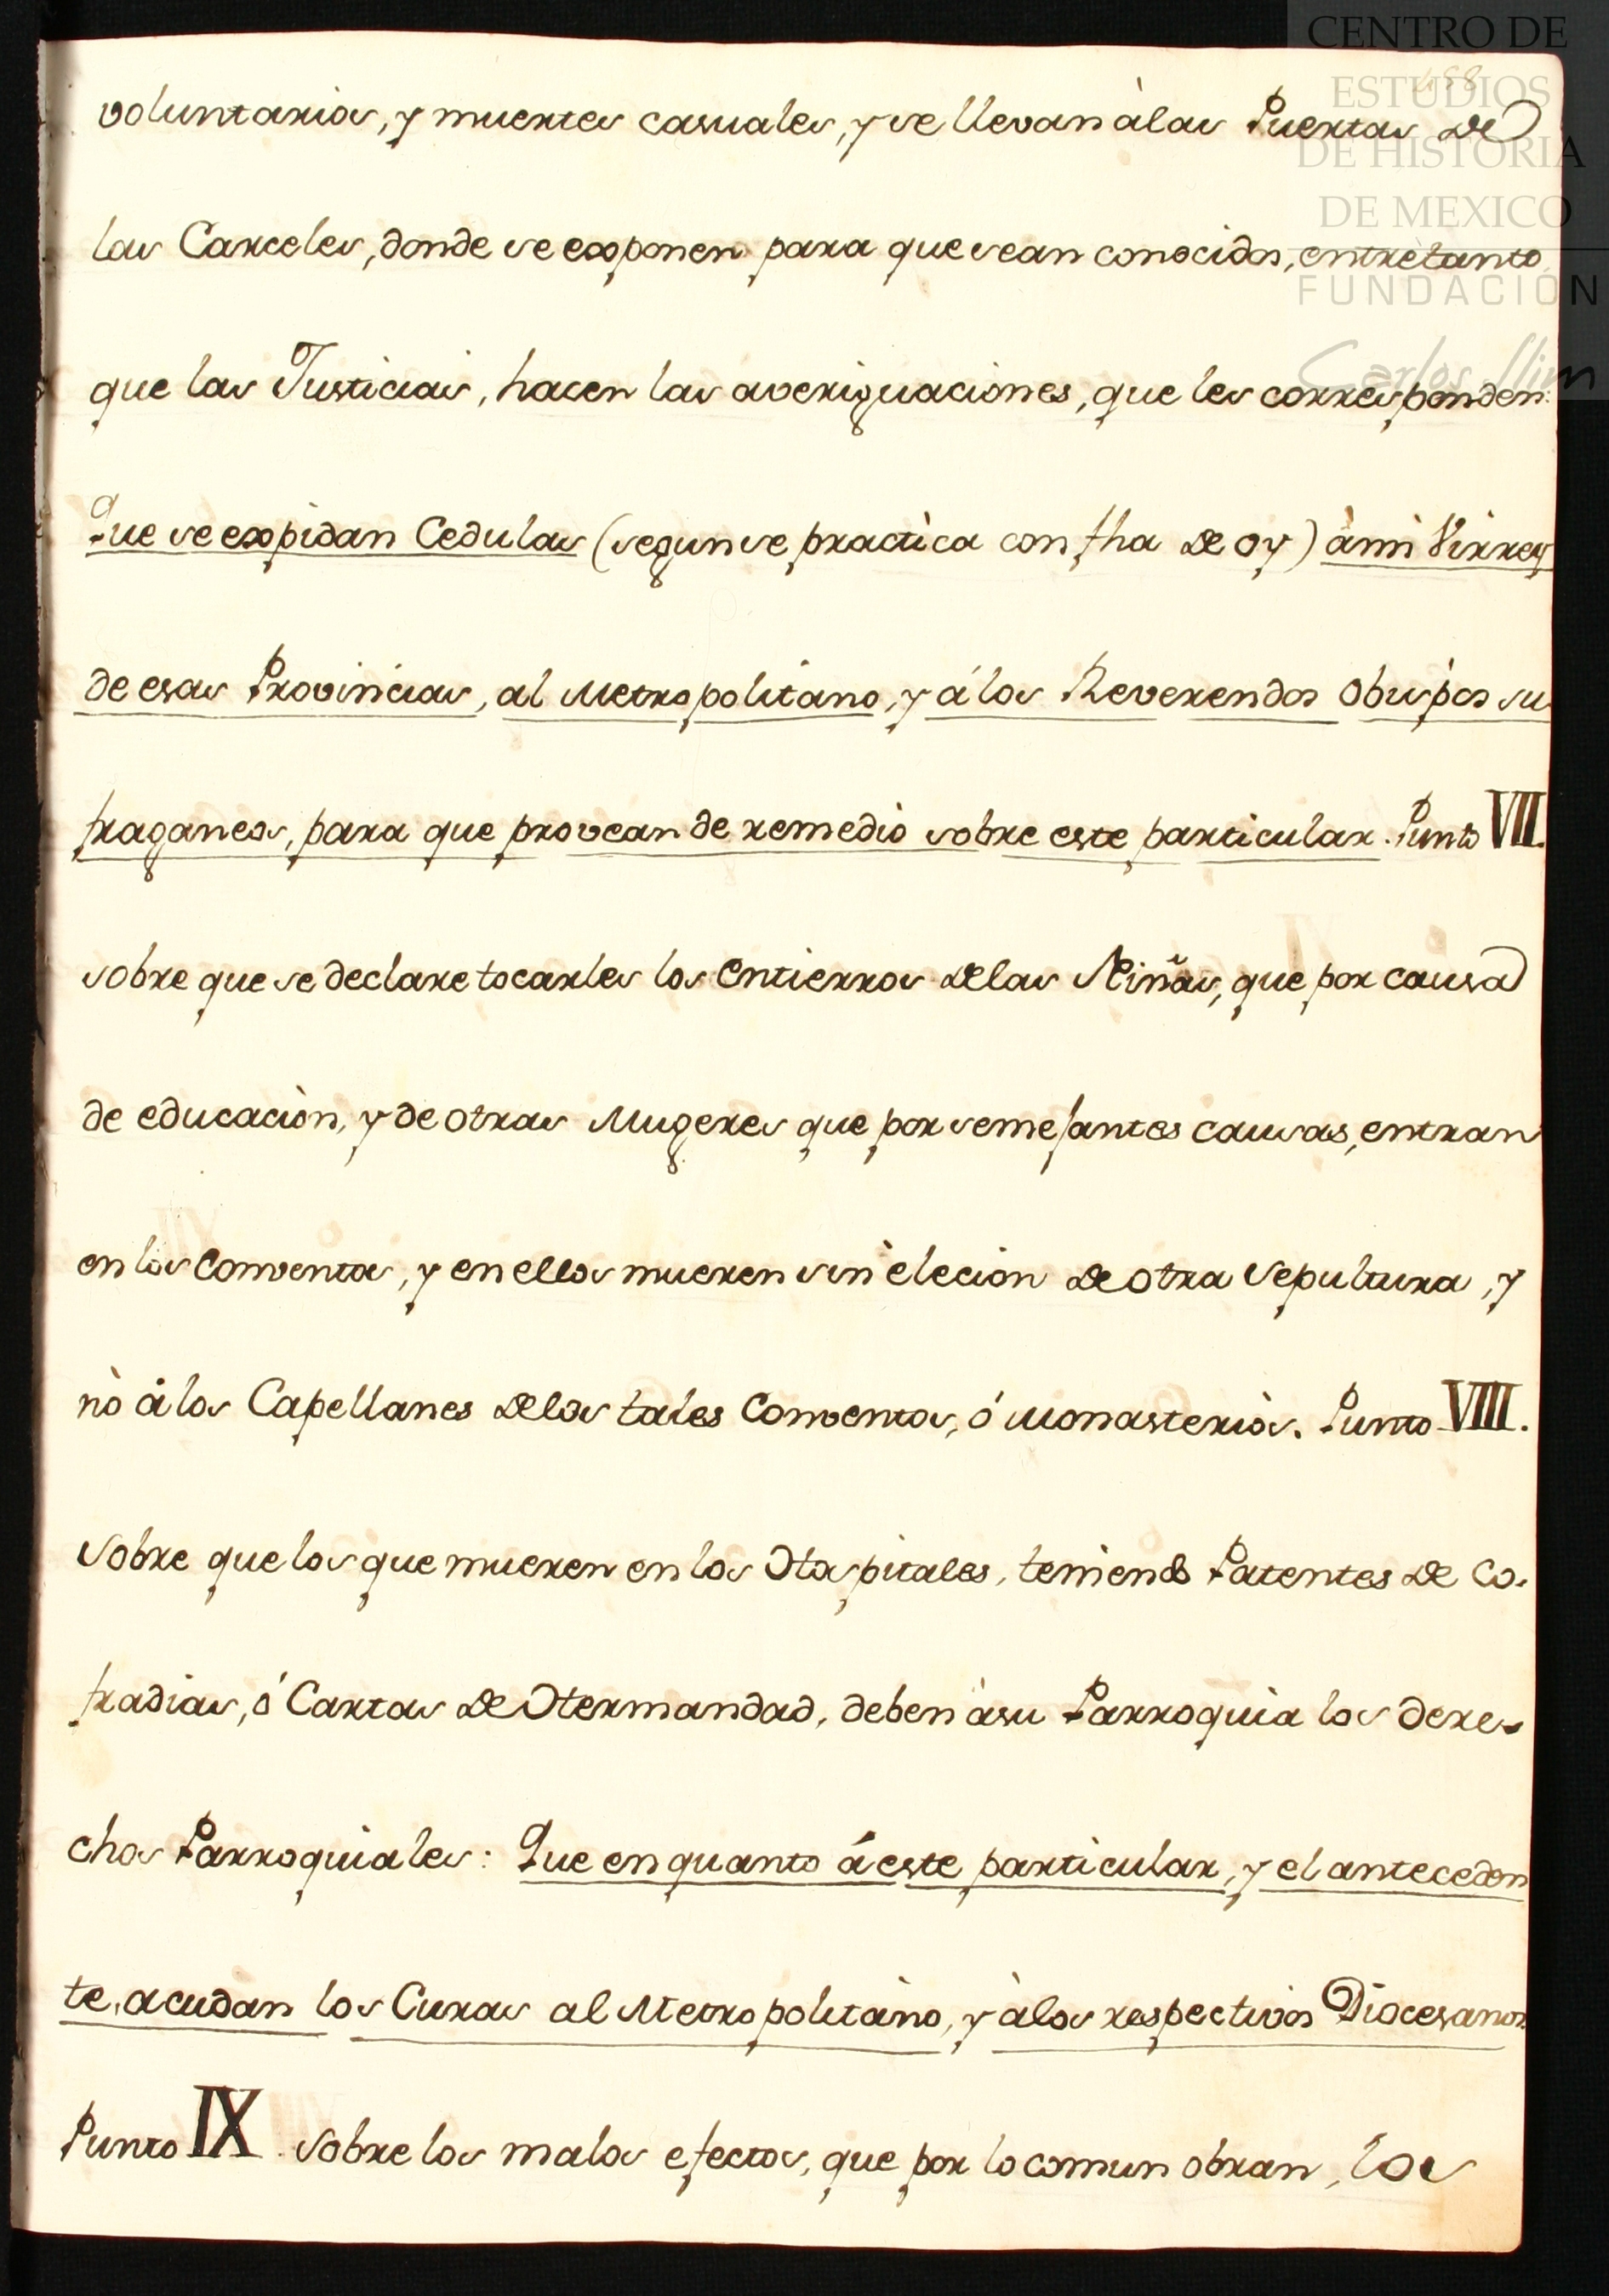 CENTRO DE
ESTUDIOS
DE HISTORIA
DE MEXICO
FUNDACIÓN
Carlos Slim
voluntarias, y muertes casuales, y se llevan à las Puertas de
las Carceles, donde se exponen para que sean conocidos, entretanto
que las Justicias, hacen las averiguaciones, que les corresponden:
Que se expidan Cedulas (segun se practica con fha de oy) à mi Virrey
de esas Provincias, al Metropolitano, y á los Reverendos Obispos su
fraganeos, para que provean de remedio sobre este particular. Punto VII.
sobre que se declare tocarles los Entierros de las Niñas, que por causa
de educaciòn, y de otras Mugeres que por semejantes causas, entran
en los Conventos, y en ellos mueren sin elecion de otra sepultura, y
nò à los Capellanes de los tales Conventos, ó Monasterios. Punto VIII.
Sobre que los que mueren en los Hospitales, teniendo Patentes de Co-
fradias, ó Cartas de Hermandad, deben à su Parroquia los dere-
chos Parroquiales: Que en quanto á este particular, y el anteceden
te, acudan los Curas al Metropolitano, y à los respectivos Diocesanos.
Punto IX. Sobre los malos efectos, que por lo comun obran, los